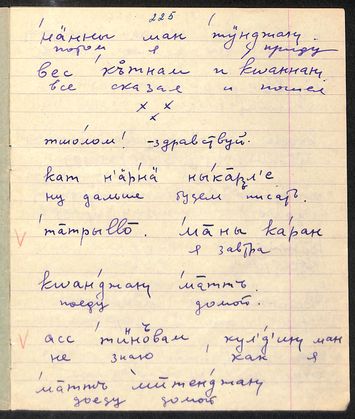 225
мӓнны ман тӱнджан.
потом я приду
вес къ̊тнам и кшаннан.
все сказал и пошел
х х
х
тшолом! - здравствуй.
кат н'ӓрнӓ ныка̄рл'е
ну дальше будем писать.
та̄трывво̄. ма̄ны ка́ран
я завтра
кшан'джан ма̄ттъ.
поеду домой.
асс тӣновам, кул'д'ин ман
не знаю как я
ма̄ттъ мӣтенджан
доеду домой